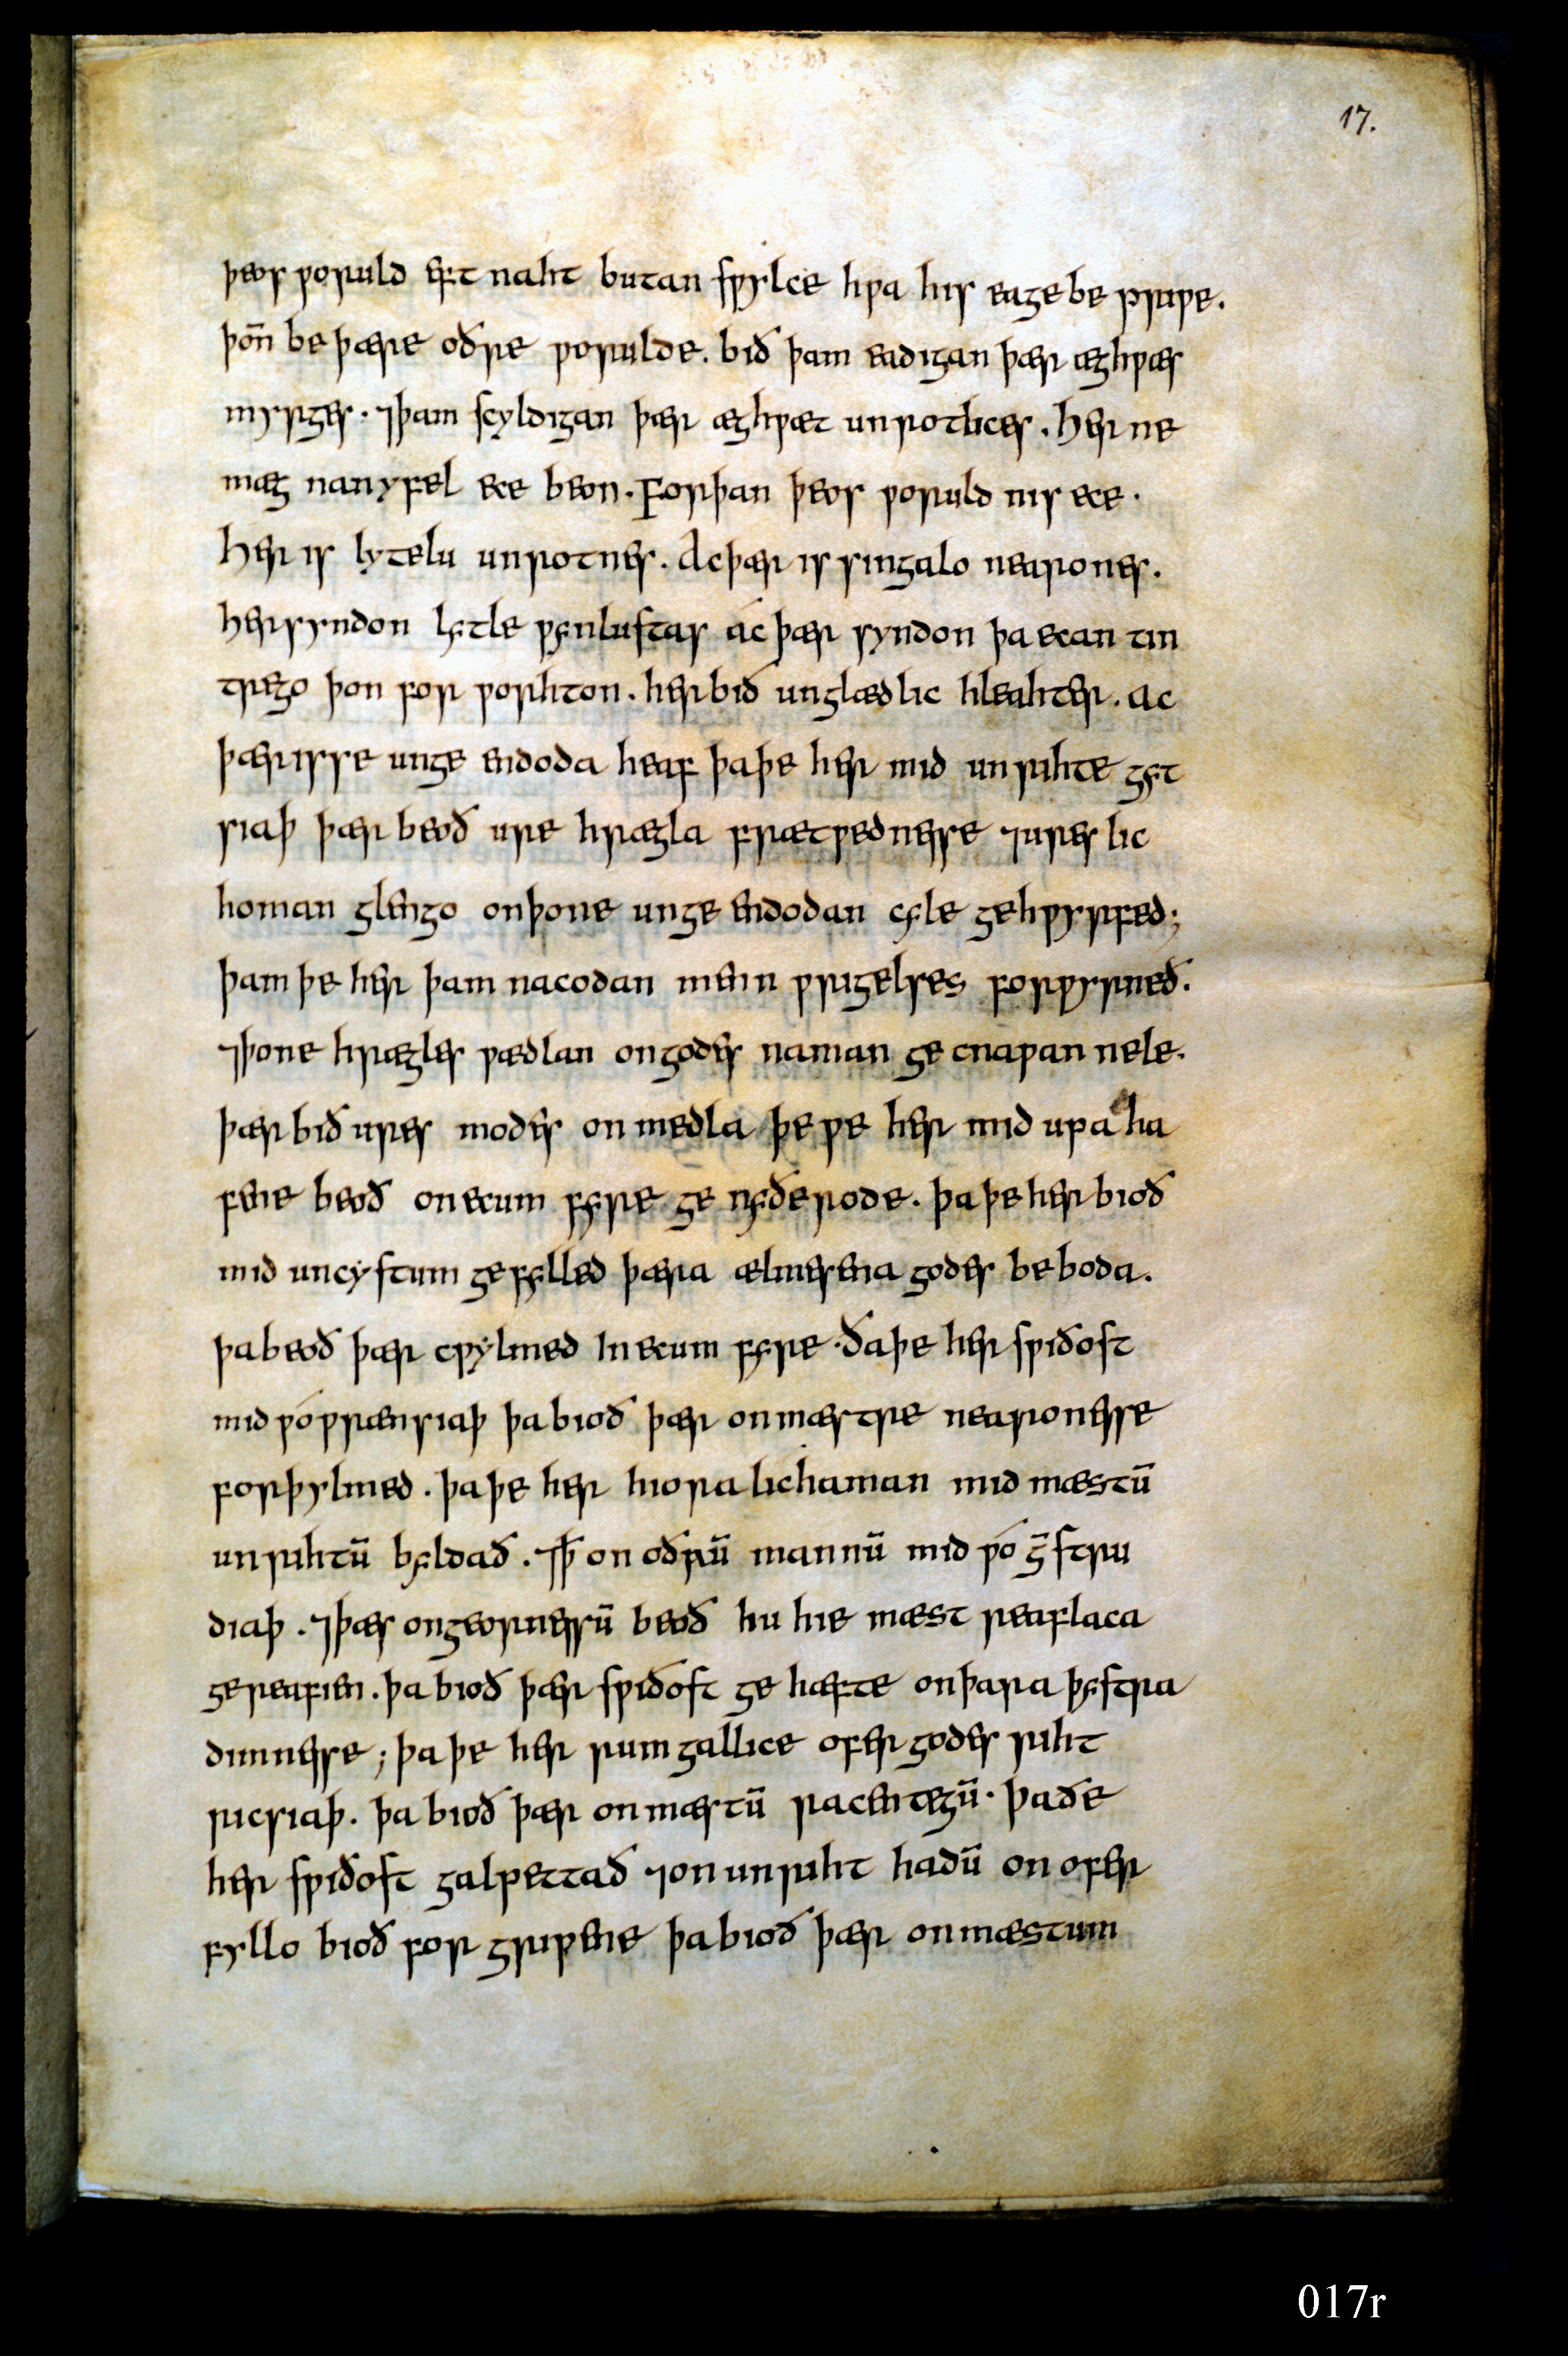 17.
þeos ƿoruld eft naht butan sƿylce hƿa his eage bepriƿe.
þoñ be þære oðre ƿorulde. bið þam eadigan þær æghƿæs
myrges. ⁊þam scyldigan þær æghƿæt unrotlices. Her ne
mæg nan yfel ece beon. Forþan þeos ƿoruld nis ece.
Her is lytelu unrotnes. Ac þær is singalo nearones.
her syndon lytle ƿynlustas ác þær syndon þa ecan tin
trego þon for ƿorhton. her bið unglædlic hleahter. ac
þær is se unge endoda heaf þa þe her mid unrihte gyt
siaþ þær beoð ure hrægla frætƿednesse ⁊ures lic
homan glengo on þone unge endodan cyle gehƿyrfed;
þam þe her þam nacodan menn ƿrigelses forƿyrned.
⁊þone hrægles ƿædlan on godes naman ge cnaƿan nele.
þær bið ures modes on medla þe ƿe her mid upa ha
fene beoð on ecum fyre ge nyðerode. þa þe her bioð
mid uncystum gefylled þæra ælmesena godes beboda.
þa beoð þær cƿylmed In ecum fyre. Ða þe her sƿiðost
mid ƿó ƿrænsiaþ þa bioð þær on mæstre nearonesse
forþylmed. þa þe her hiora lichaman mid mæstū
unrihtū byldað. ⁊ꝥ on oðrū mannū mid ƿó gȳstru
diaþ. ⁊þæs on geornessū beoð hu hie mæst reaflaca
gereafien. þa bioð þær sƿiðost ge hæfte on þara þystra
dimnesse; þa þe her rum gallice ofer godes riht
ricsiaþ. þa bioð þær on mæstū racentegū. þa ðe
her sƿiðost galƿettað ⁊on unriht hadū on ofer
fyllo bioð for griƿene þa bioð þær on mæstum
017r